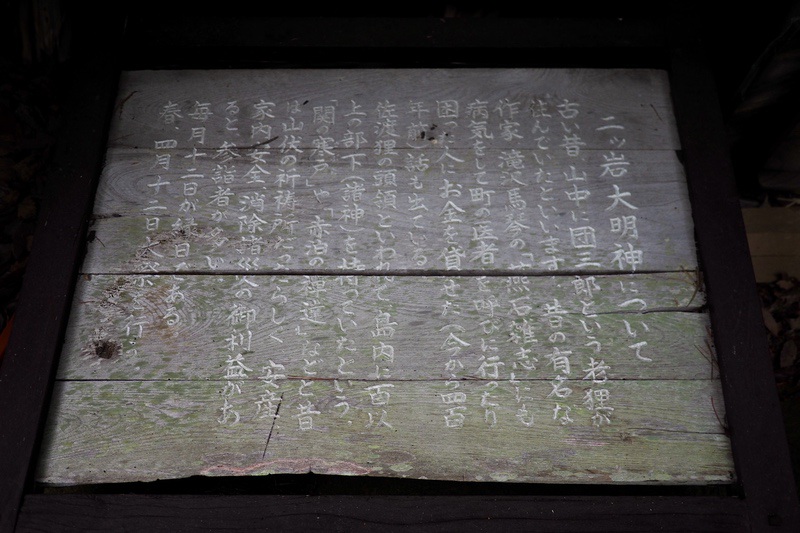 二ッ岩大明神について
古い昔、山中に団三郎という老狸が
住んでいたといいます。昔の有名な
作家、滝沢馬琴の「燕石雑志」にも
病気をして町の医者を呼びに行ったり
困る人にお金を貸せた（今から四百
年前）話も出ている
佐渡狸の頭領といわれて島内に百以
上の部下（諸神）を持っていたという、
「関の寒戸」や「赤泊の禅達」などと昔
は山伏の祈祷所だったらしく 安産
家内安全、消除諸災の御利益があ
ると、参詣者が多い。
毎月十二日が縁日である
春、四月十二日大祭を行う